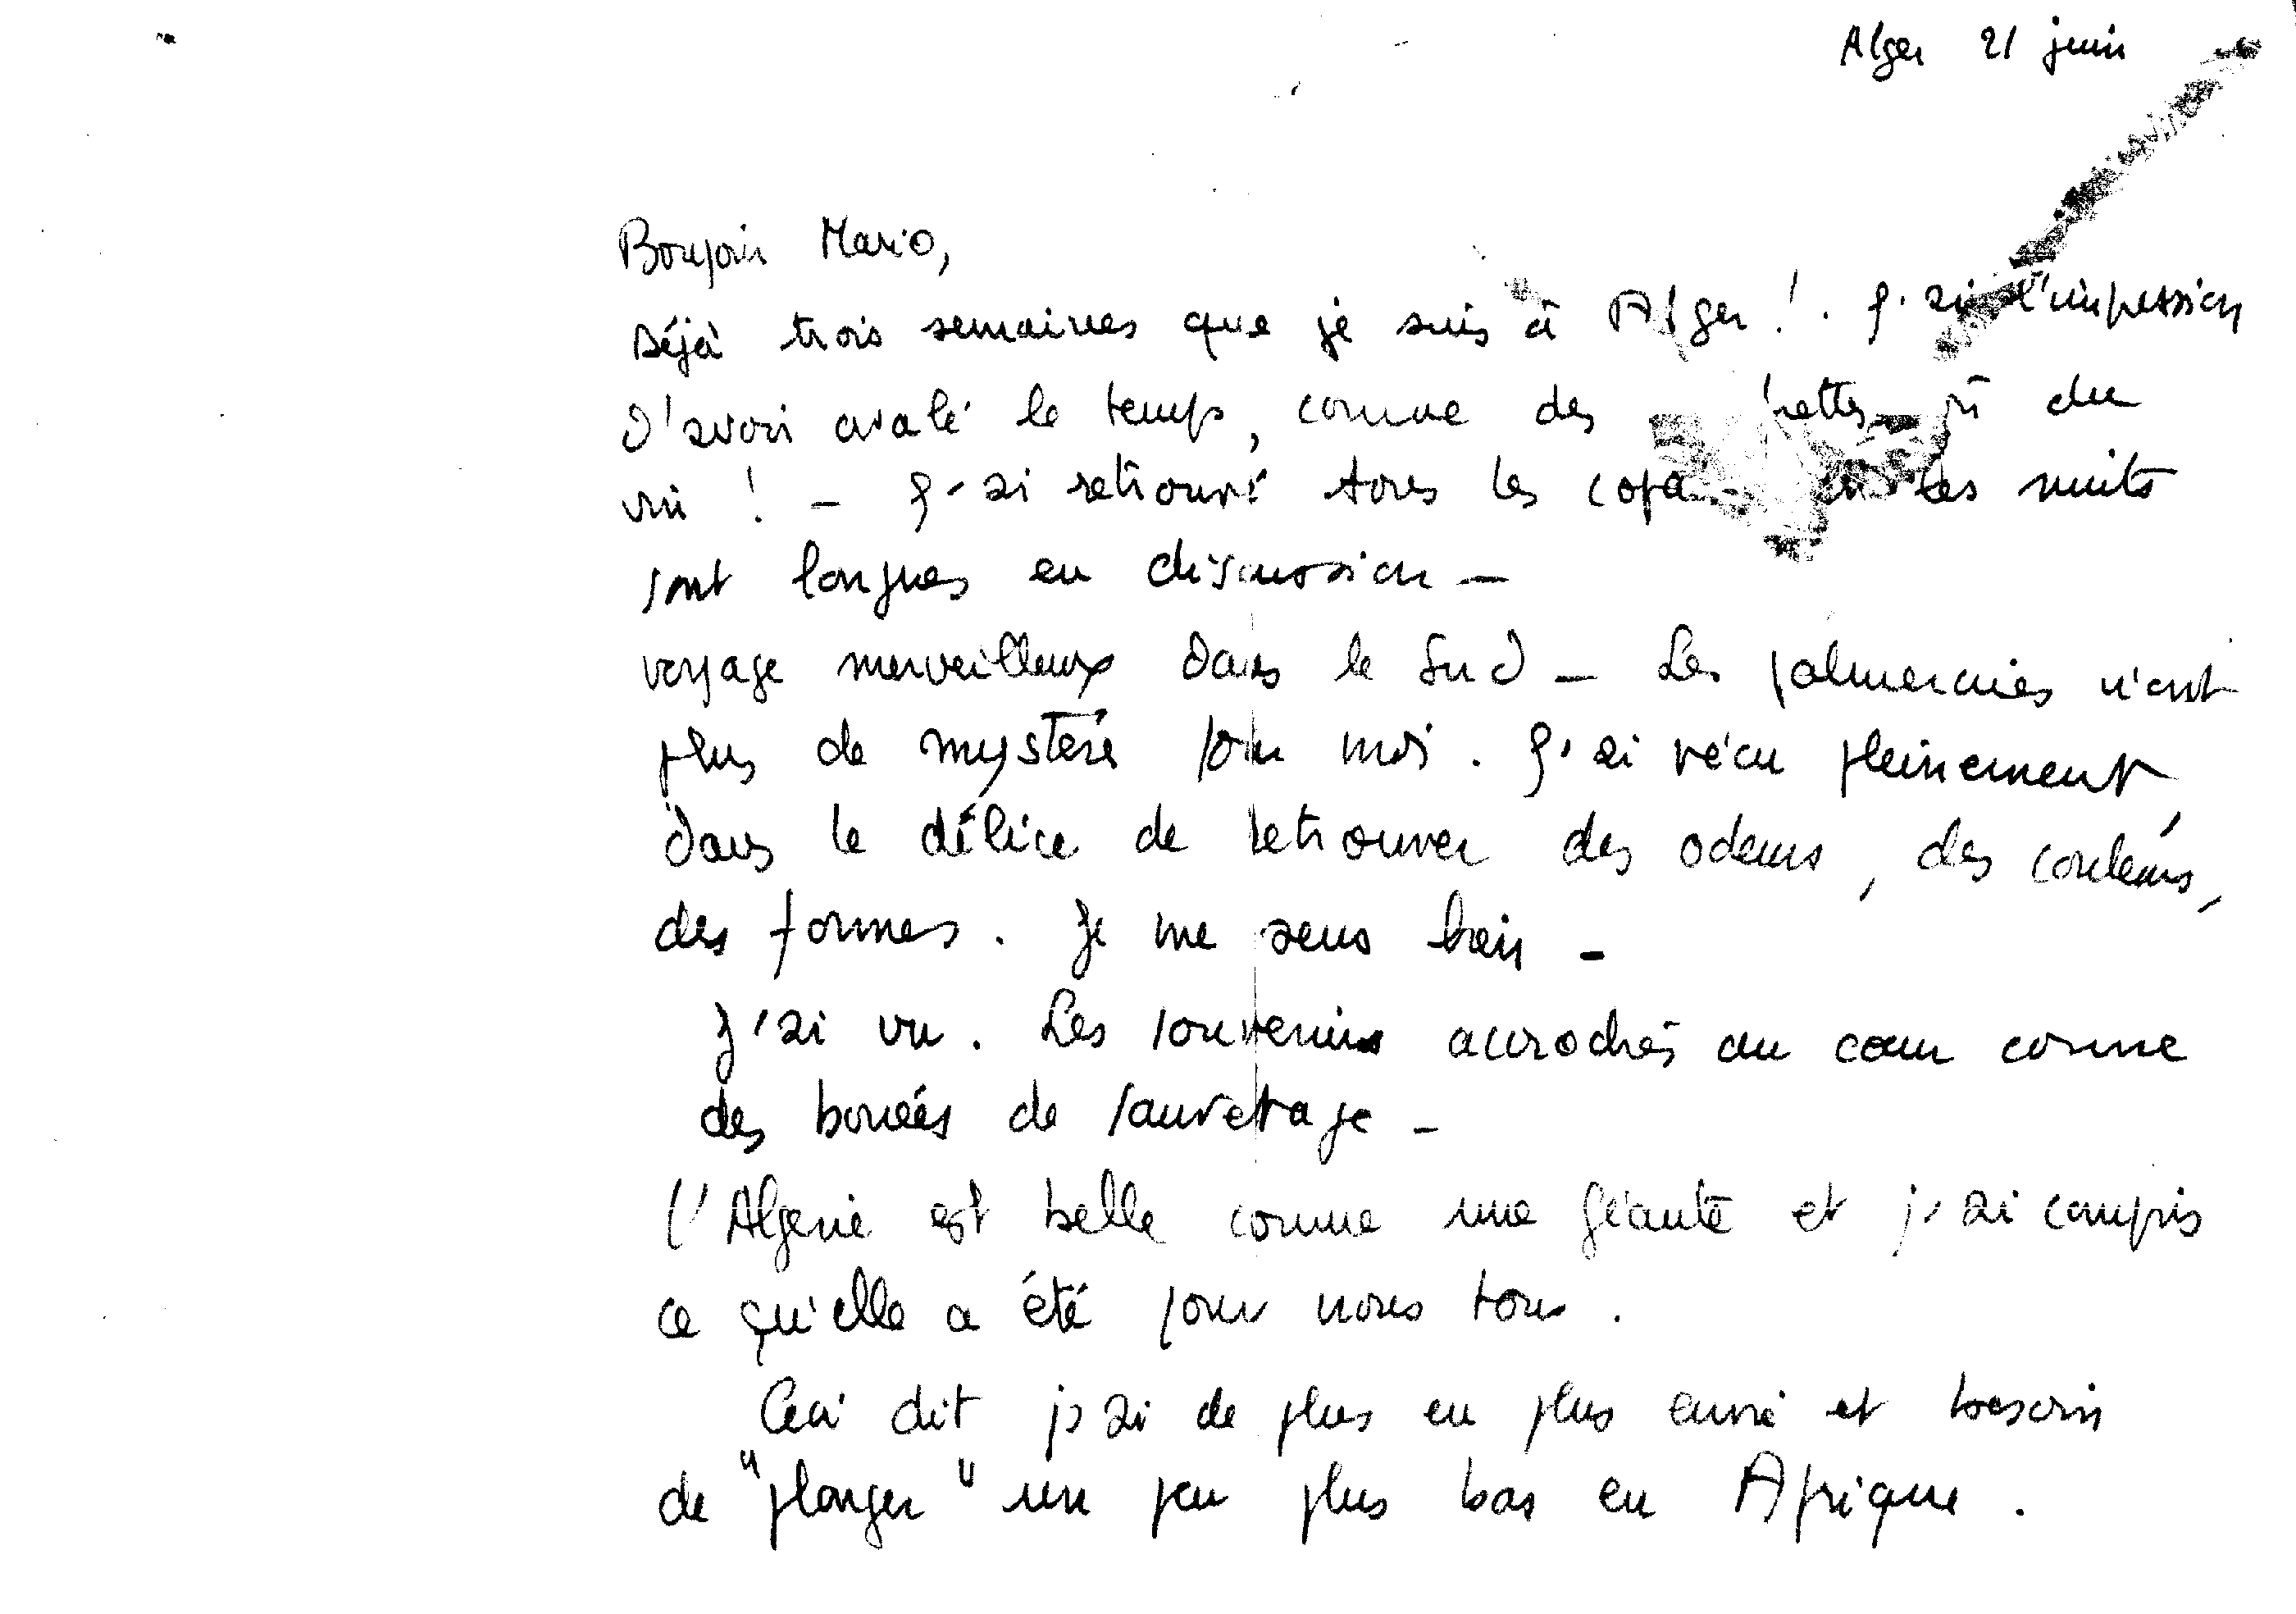 Alger 21 juin
Bonjour Mario,
Déjà trois semaines que je suis à Alger ! . J'ai l'impression
d'avoir avalé le temps, comme des ou du
vin ! - J'ai retrouvé tous les les nuits
sont longues en discussion -
voyage merveilleux dans le Sud - Les palmeraies n'ont
plus de mystère pour moi . J'ai vécu pleinement,
dans le délice de retrouver des odeurs, des couleurs,
des formes . Je me sens bien -
J'ai vu . Les souvenirs accrochés au coeur comme
des bouées de sauvetage -
L'Algérie est belle comme une géante et j'ai compris
ce qu'elle a été pour nous tous .
Ceci dit j'ai de plus en plus envie et besoin
de "plonger" un peu plus bas en Afrique .